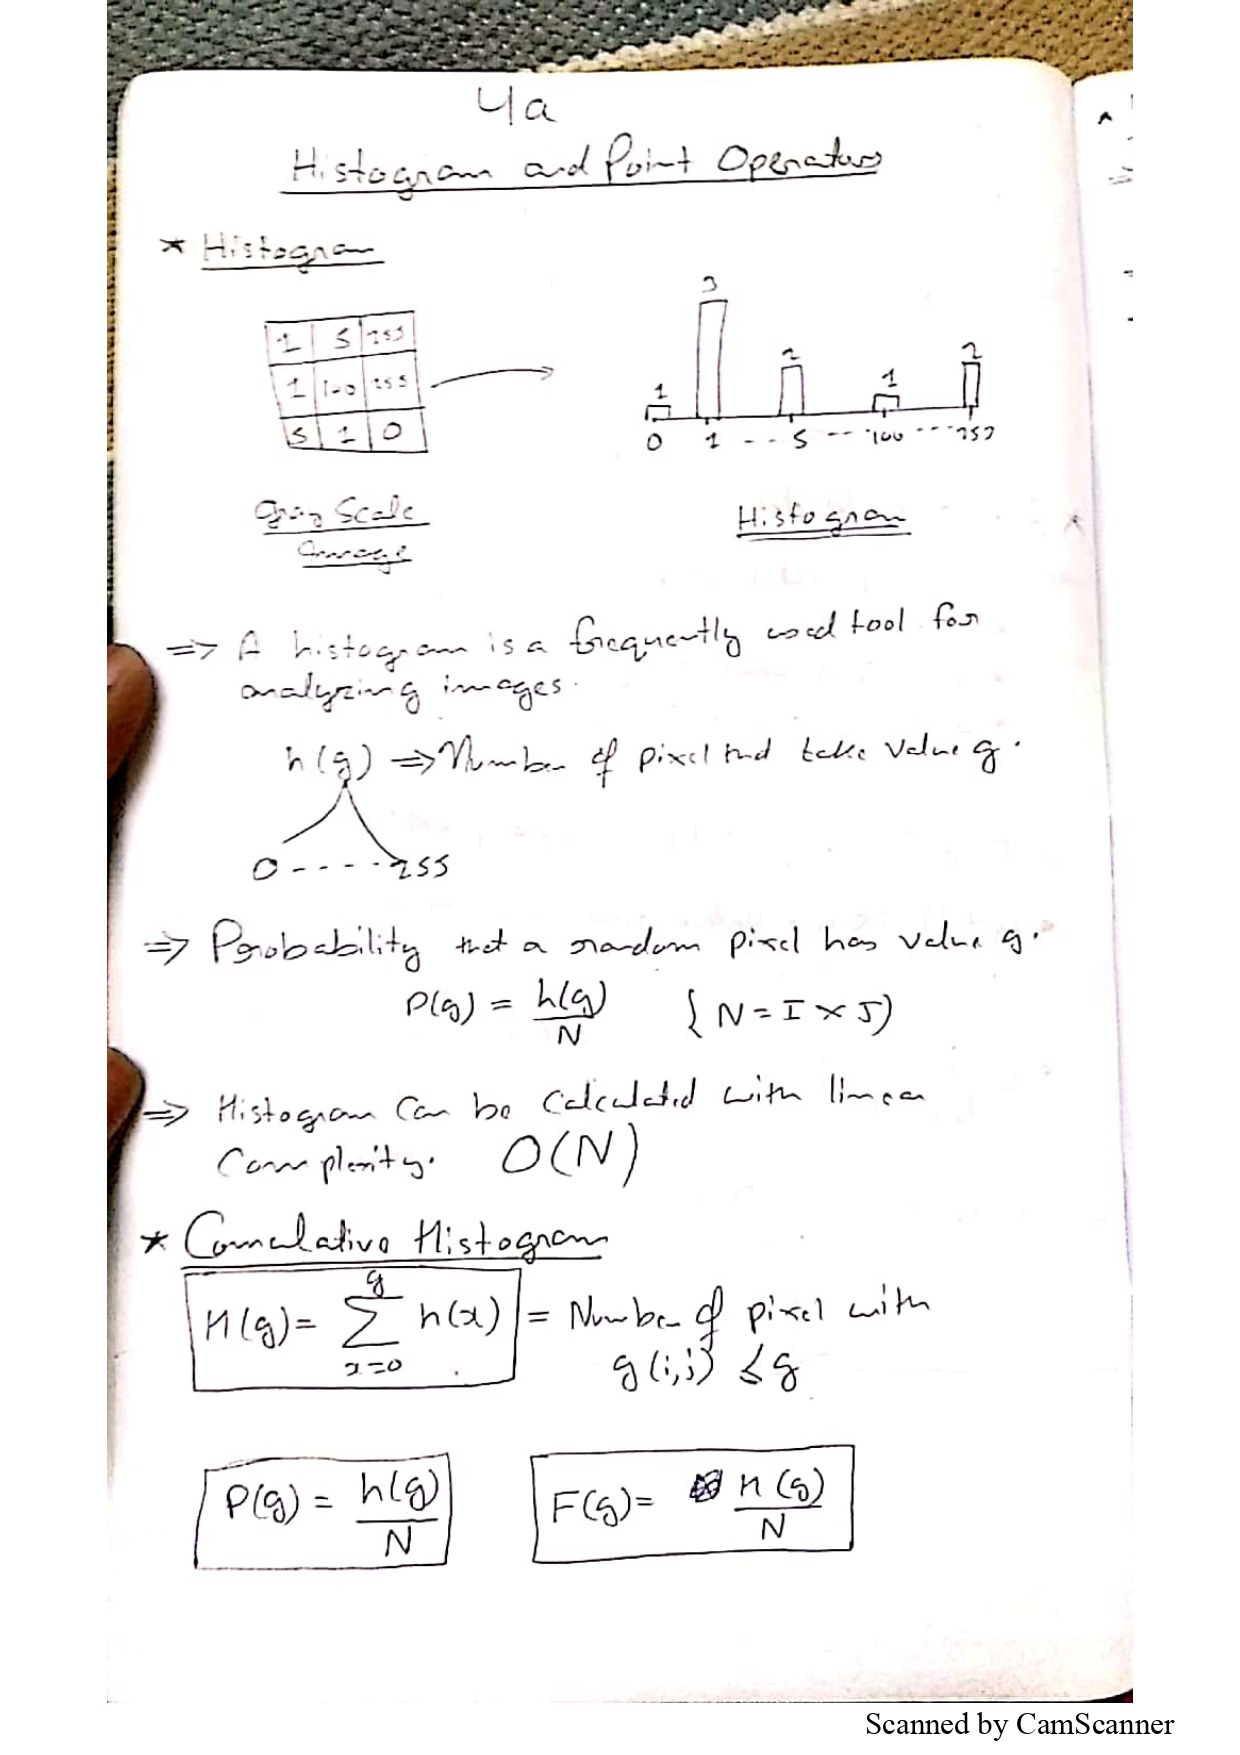 4a
Histogram and Point Operators
* Histogram
1 5 255
1 100 255
5 1 0
3
1 2 1 2
0 1 -- 5 -- 100 --- 255
Gray Scale
Image
Histogram
⇒ A histogram is a frequently used tool for
analyzing images.
h(g) ⇒ Number of pixel that take value g.
0 ---- 255
⇒ Probability that a random pixel has value g.
P(g) = h(g)/N { N = I × J)
⇒ Histogram Can be Calculated with linear
Complexity. O(N)
* Comulative Histogram
H(g) = ∑ h(x) = Number of pixel with
g
x=0
g(i,j) ≤ g
P(g) = h(g)/N
F(g) = H(g)/N
Scanned by CamScanner